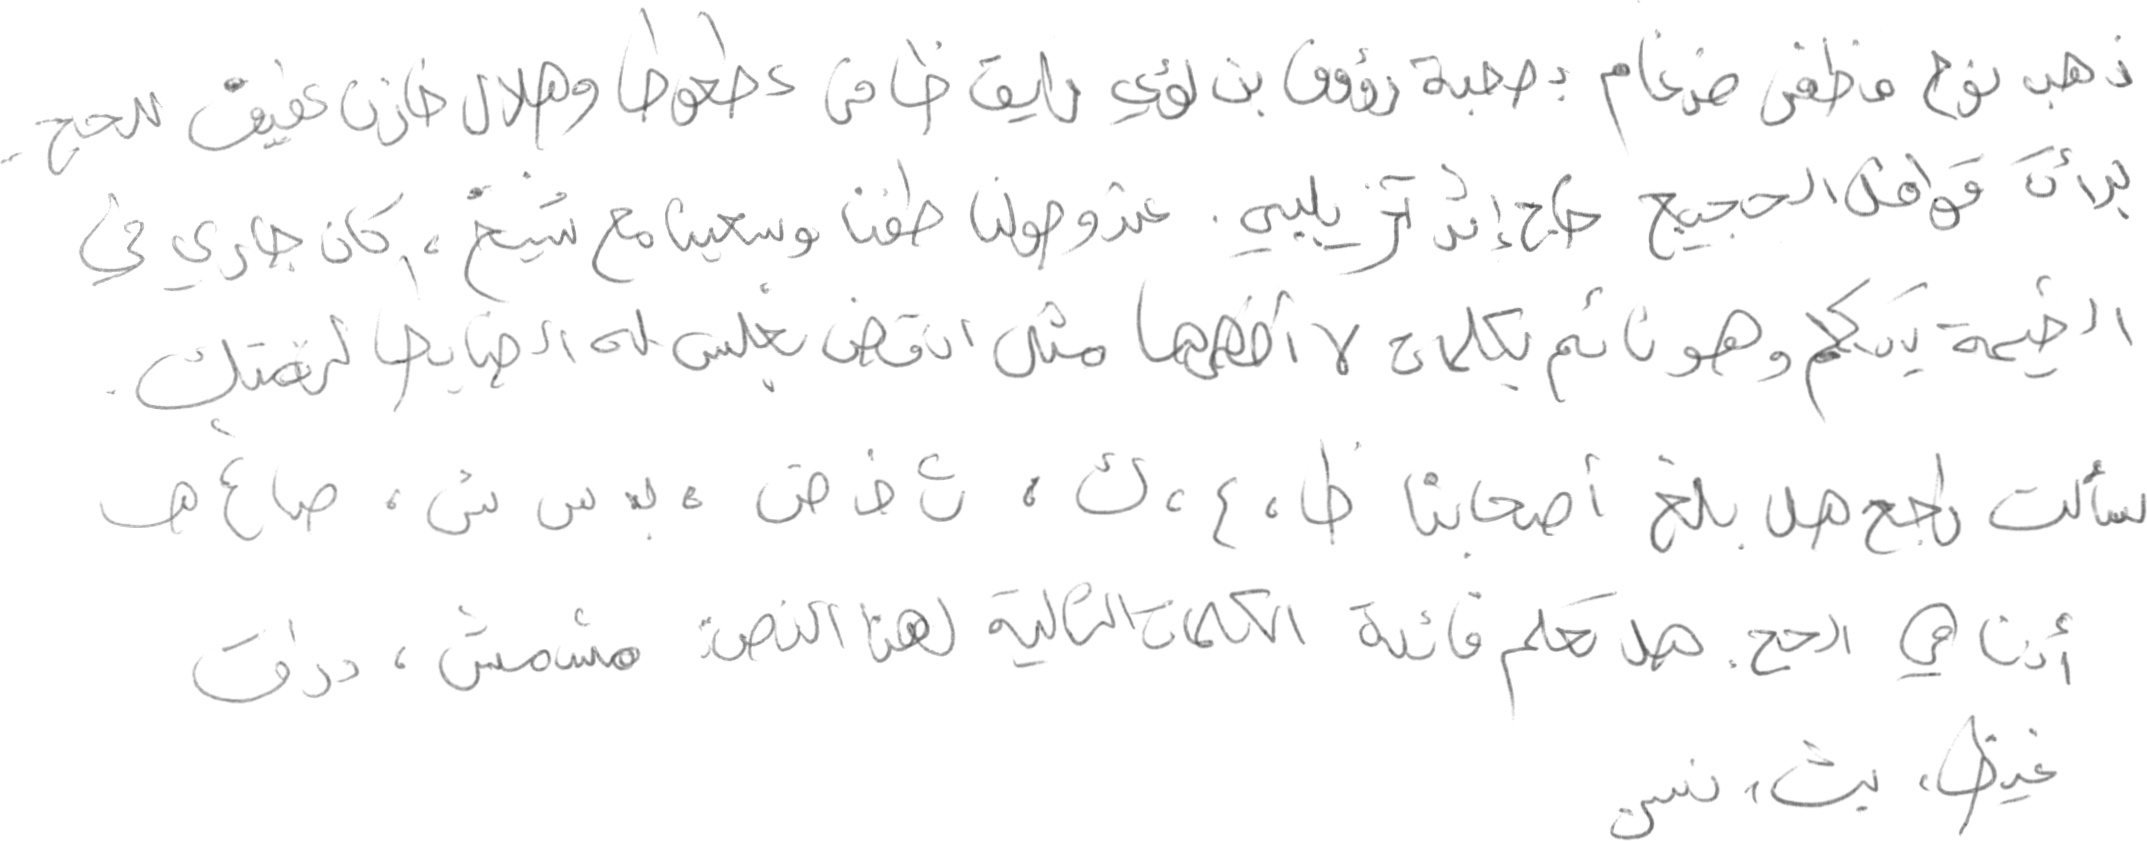 ذهب نوح مظفر ضرغام بصحبة رؤوف بن لؤي رايق ظافر عطعوط وهلال خازن عفيف للحج.
بدأت قوافل الحجيج حاج إثر آخر يلبي. عند وصولنا طفنا وسعينا مع شيخ، كان جاري في
الخيمة يتكلم وهو نائم بكلمات لا أفهمها مثل انقض بغلس له الضابط لرقبتك.
سألت راجح هل بلغ أصحابنا ظ، ع، ك، ث خ ض، بد س ش، صاغ هـ
أننا في الحج. هل تعلم فائدة الكلمات التالية لهذا النص: مشمش، دراق
غيظ، بث، نفس